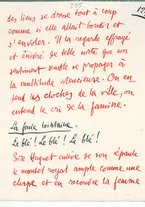 255
des lieux se dresse tout à coup
comme si elle allait bondir et
s'envoler. Il la regarde effrayé
et enivré de telle sorte que son
sentiment semble se propager à
la multitude silencieuse. On en-
tend les cloches de la ville, on
entend le cri de la famine.
La foule lointaine.
Le blé ! Le blé ! Le blé !
enlève de son épaule
le manteau royal ample comme une
chape et en recouvre la femme